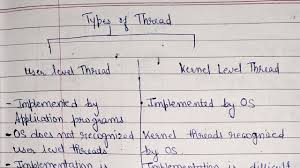 Types of Thread
User level Thread
Kernel Level Thread
- Implemented by Application programs
- Implemented by OS
- OS does not recognized user level threads
Kernel threads recognised by OS
- Implementation is
Implementation is difficult